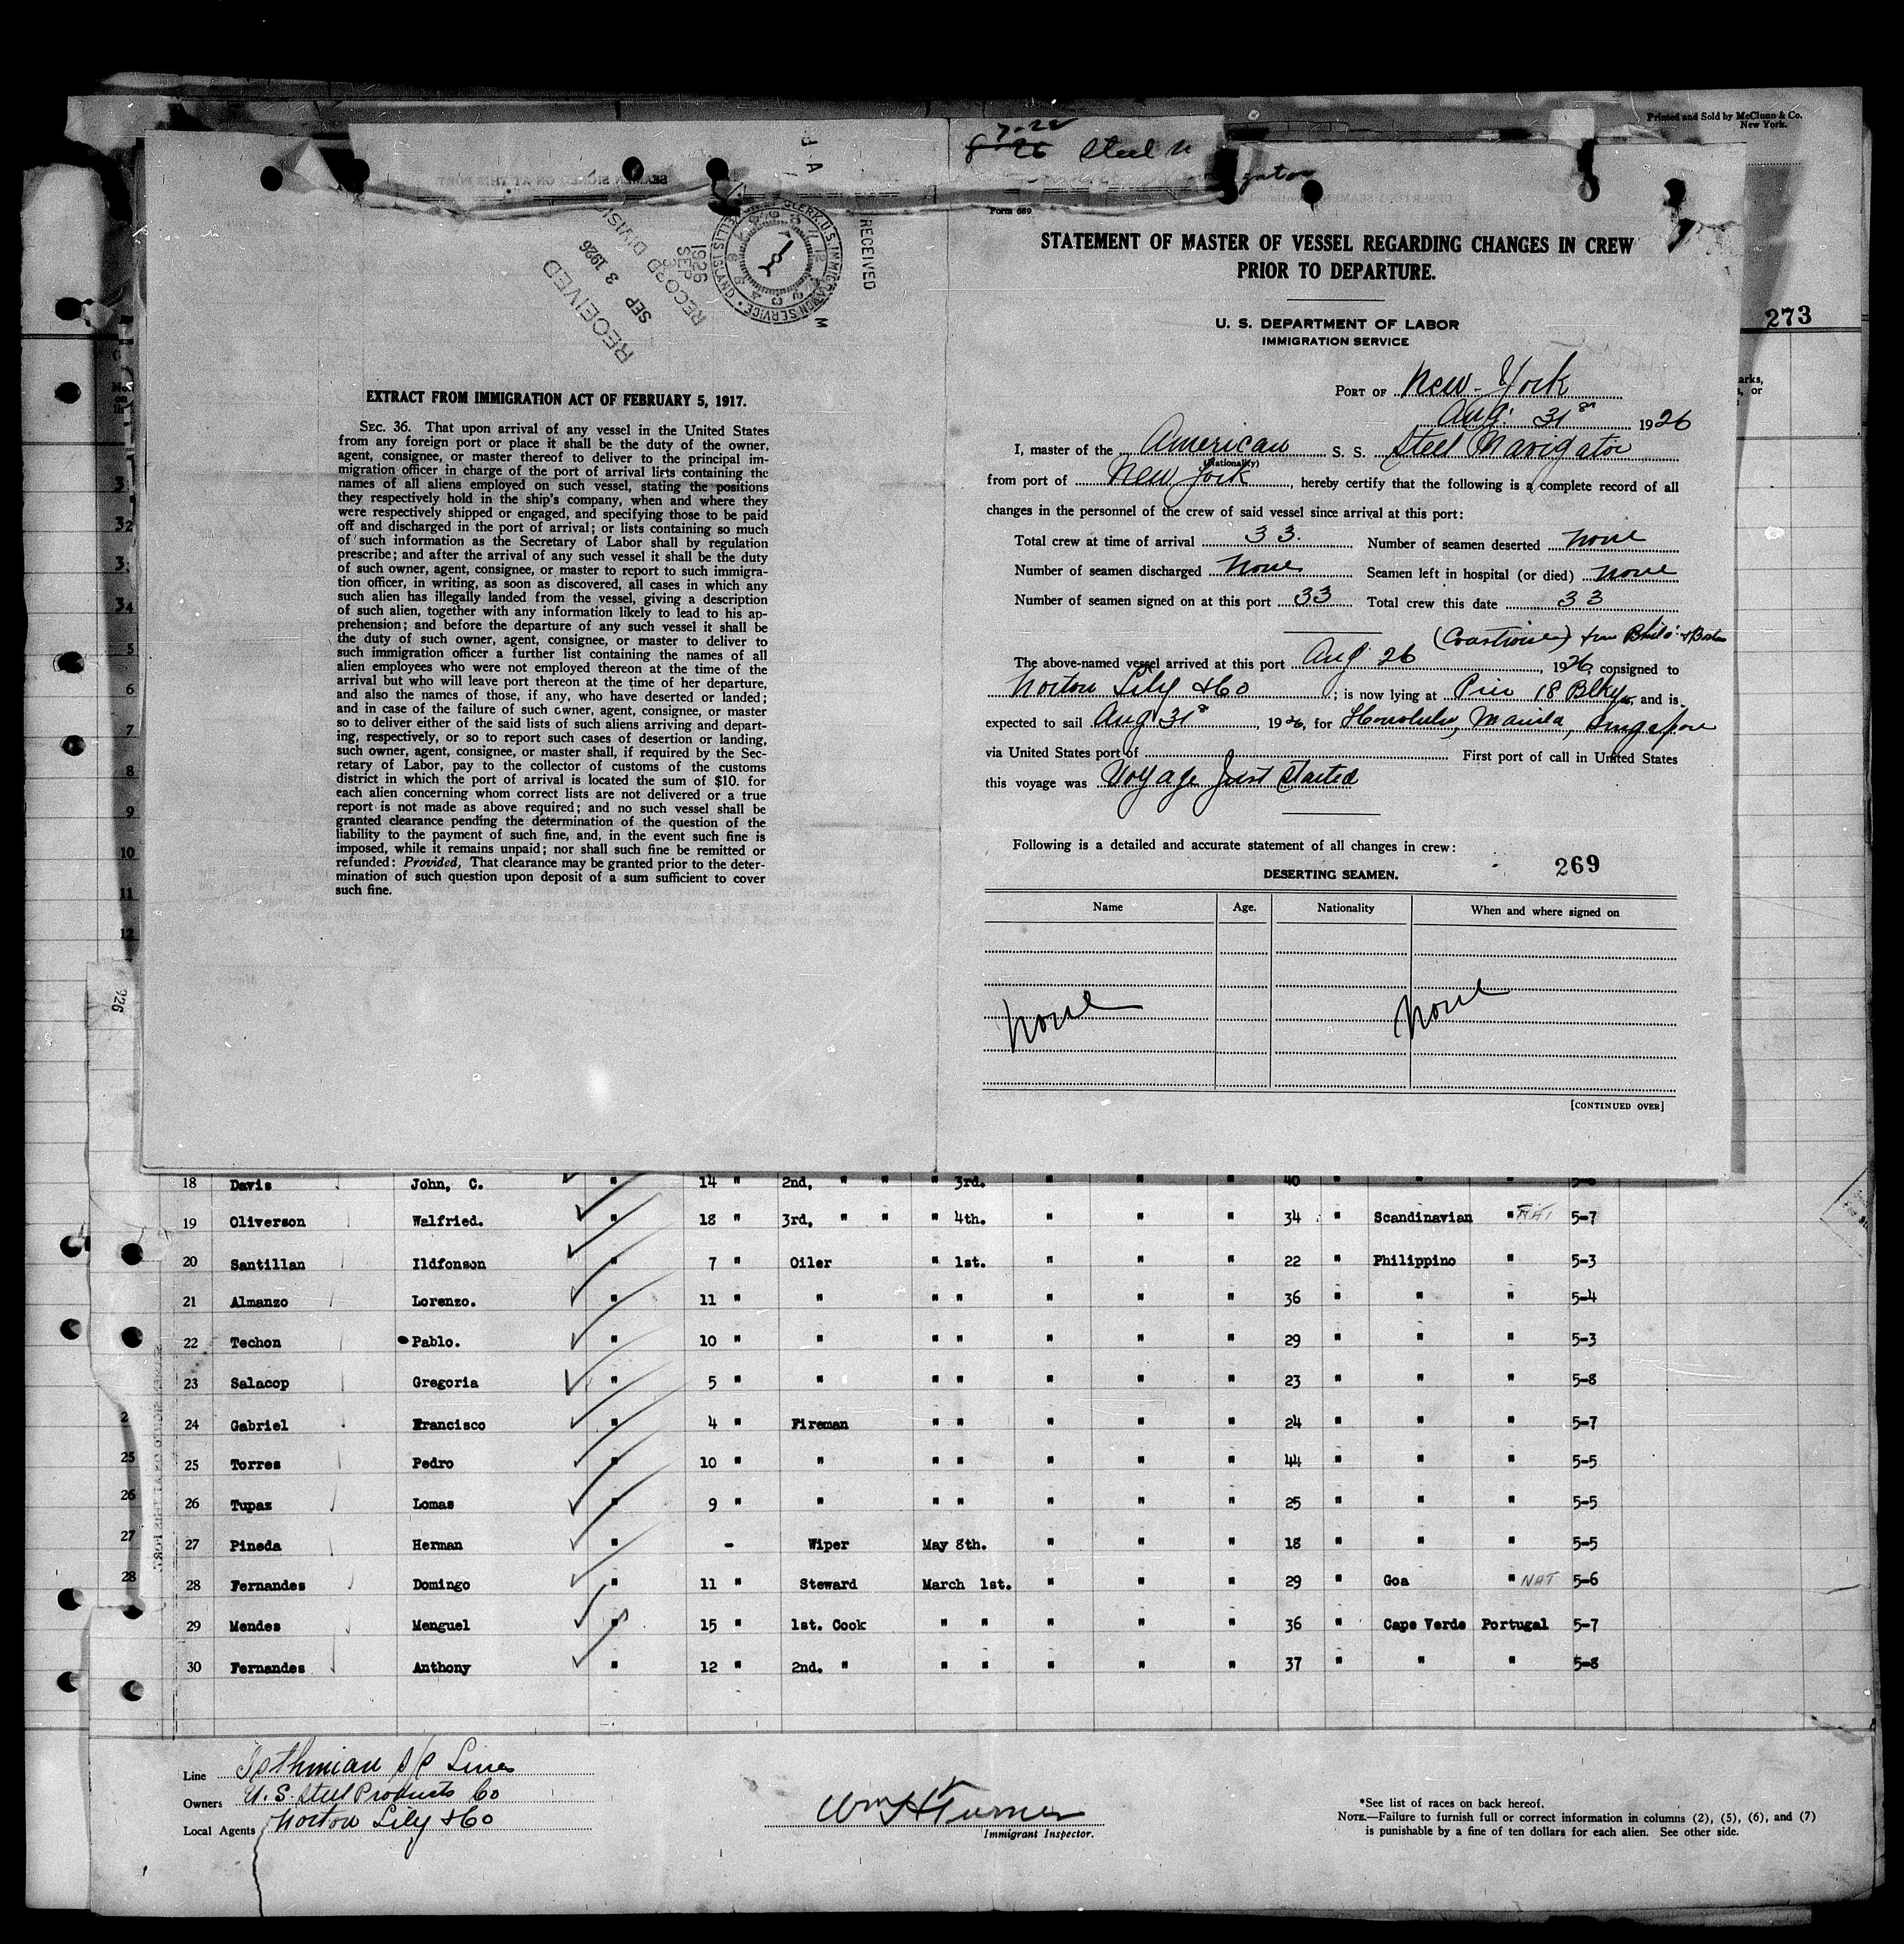 Printed and Sold by McClunn & Co.
New York.
7-22
8-26 Steel N
gator
RECEIVED
SEP 3 1926
RECORD DIVISION
1926
SEP
RECEIVED
273
Form 689
STATEMENT OF MASTER OF VESSEL REGARDING CHANGES IN CREW
PRIOR TO DEPARTURE.
U. S. DEPARTMENT OF LABOR
IMMIGRATION SERVICE
PORT OF New-York
Aug. 31st 1926
I, master of the American S. S. Steel Navigator
(Nationality)
from port of New York, hereby certify that the following is a complete record of all
changes in the personnel of the crew of said vessel since arrival at this port:
Total crew at time of arrival 33. Number of seamen deserted none
Number of seamen discharged None Seamen left in hospital (or died) none
Number of seamen signed on at this port 33 Total crew this date 33
(Coastwise) from Phila. & Boston
The above-named vessel arrived at this port Aug 26 1926, consigned to
Norton Lily & Co; is now lying at Pier 18 Bklyn, and is
expected to sail Aug 31st, 1926, for Honolulu, Manila, Singapore
via United States port of First port of call in United States
this voyage was Voyage Just Started
Following is a detailed and accurate statement of all changes in crew:
269
DESERTING SEAMEN.
Name Age. Nationality When and where signed on
None None
[CONTINUED OVER]
EXTRACT FROM IMMIGRATION ACT OF FEBRUARY 5, 1917.
SEC. 36. That upon arrival of any vessel in the United States
from any foreign port or place it shall be the duty of the owner,
agent, consignee, or master thereof to deliver to the principal im-
migration officer in charge of the port of arrival lists containing the
names of all aliens employed on such vessel, stating the positions
they respectively hold in the ship's company, when and where they
were respectively shipped or engaged, and specifying those to be paid
off and discharged in the port of arrival; or lists containing so much
of such information as the Secretary of Labor shall by regulation
prescribe; and after the arrival of any such vessel it shall be the duty
of such owner, agent, consignee, or master to report to such immigra-
tion officer, in writing, as soon as discovered, all cases in which any
such alien has illegally landed from the vessel, giving a description
of such alien, together with any information likely to lead to his ap-
prehension; and before the departure of any such vessel it shall be
the duty of such owner, agent, consignee, or master to deliver to
such immigration officer a further list containing the names of all
alien employees who were not employed thereon at the time of the
arrival but who will leave port thereon at the time of her departure,
and also the names of those, if any, who have deserted or landed;
and in case of the failure of such owner, agent, consignee, or master
so to deliver either of the said lists of such aliens arriving and depart-
ing, respectively, or so to report such cases of desertion or landing,
such owner, agent, consignee, or master shall, if required by the Sec-
retary of Labor, pay to the collector of customs of the customs
district in which the port of arrival is located the sum of $10. for
each alien concerning whom correct lists are not delivered or a true
report is not made as above required; and no such vessel shall be
granted clearance pending the determination of the question of the
liability to the payment of such fine, and, in the event such fine is
imposed, while it remains unpaid; nor shall such fine be remitted or
refunded: Provided, That clearance may be granted prior to the deter-
mination of such question upon deposit of a sum sufficient to cover
such fine.
18 Davis John, C. " 14 " 2nd, " " " 3rd. " " " 40 " " "
19 Oliverson Walfried. " 18 " 3rd, " " " 4th. " " " 34 " Scandinavian " NAT 5-7
20 Santillan Ildfonson " 7 " Oiler " 1st. " " " 22 " Philippino " 5-3
21 Almanzo Lorenzo. " 11 " " " " " " " 36 " " " 5-4
22 Techon Pablo. " 10 " " " " " " " 29 " " " 5-3
23 Salacop Gregoria " 5 " " " " " " " 23 " " " 5-8
24 Gabriel Francisco " 4 " Fireman " " " " " 24 " " " 5-7
25 Torres Pedro " 10 " " " " " " " 44 " " " 5-5
26 Tupaz Lomas " 9 " " " " " " " 25 " " " 5-5
27 Pineda Herman " - Wiper May 8th. " " " 18 " " " 5-5
28 Fernandes Domingo " 11 " Steward March 1st. " " " 29 " Goa " NAT 5-6
29 Mendes Menguel " 15 " 1st. Cook " " " " " 36 " Cape Verde Portugal 5-7
30 Fernandes Anthony " 12 " 2nd. " " " " " " 37 " " " 5-8
Line Isthmian S/S Lines
Owners U. S. Steel Products Co
Local Agents Norton Lily & Co
Wm H Turner
Immigrant Inspector.
*See list of races on back hereof.
NOTE.—Failure to furnish full or correct information in columns (2), (5), (6), and (7)
is punishable by a fine of ten dollars for each alien. See other side.